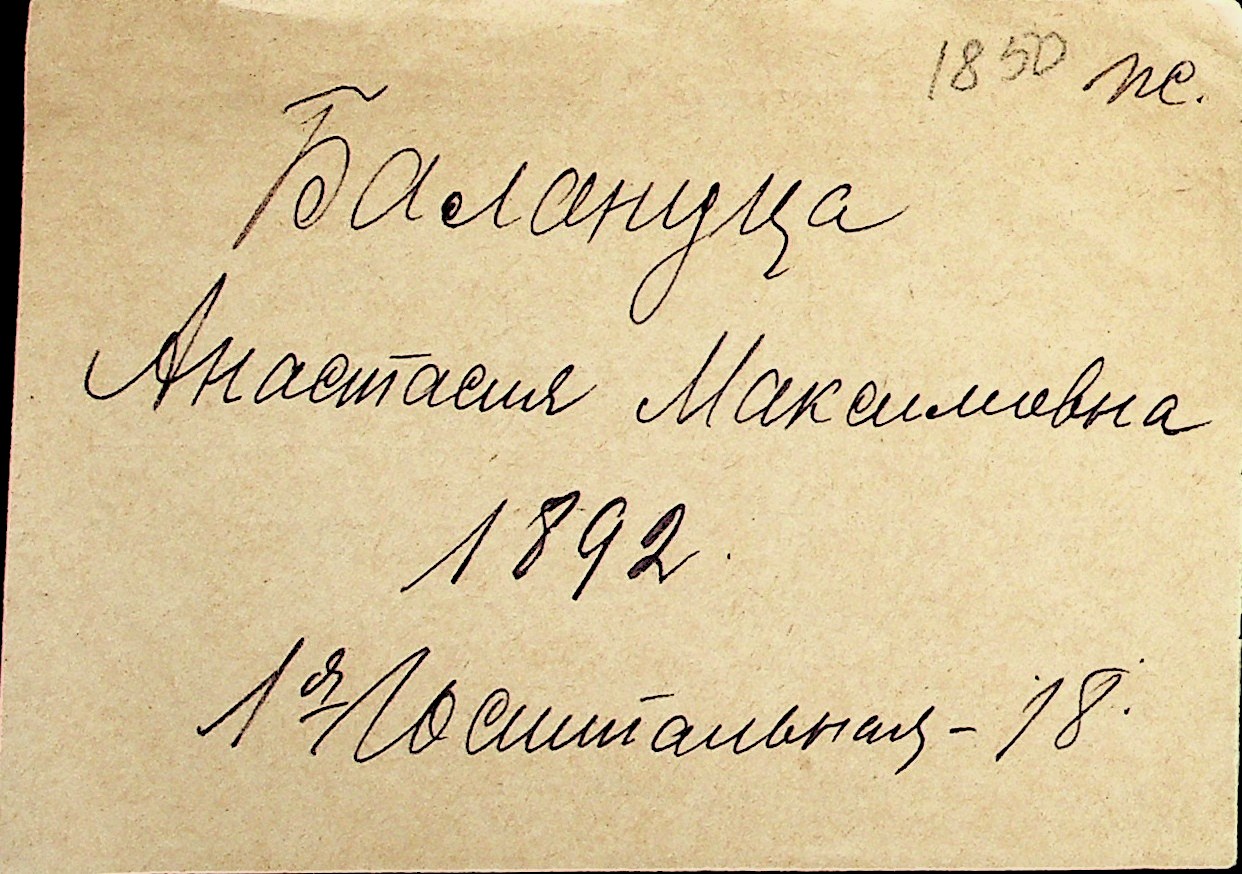 1850 пс.
Балануца
Анастасия Максимовна
1892.
1я Госпитальная - 18.